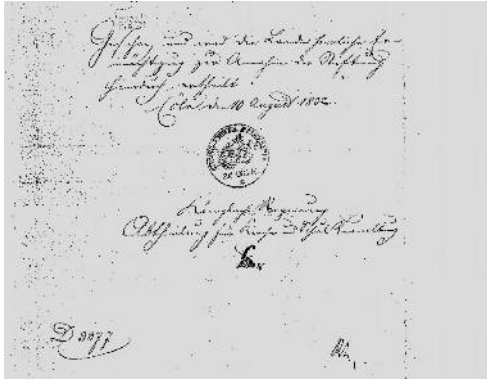 Gesehen und wird die Landesherrliche Er-
mächtigung zur Annahme der Stiftung
hierdurch ertheilt.
Cöln den 10 August 1832.
Königliche Regierung
Abtheilung für Kirchen und Schul Verwaltung
D 3077